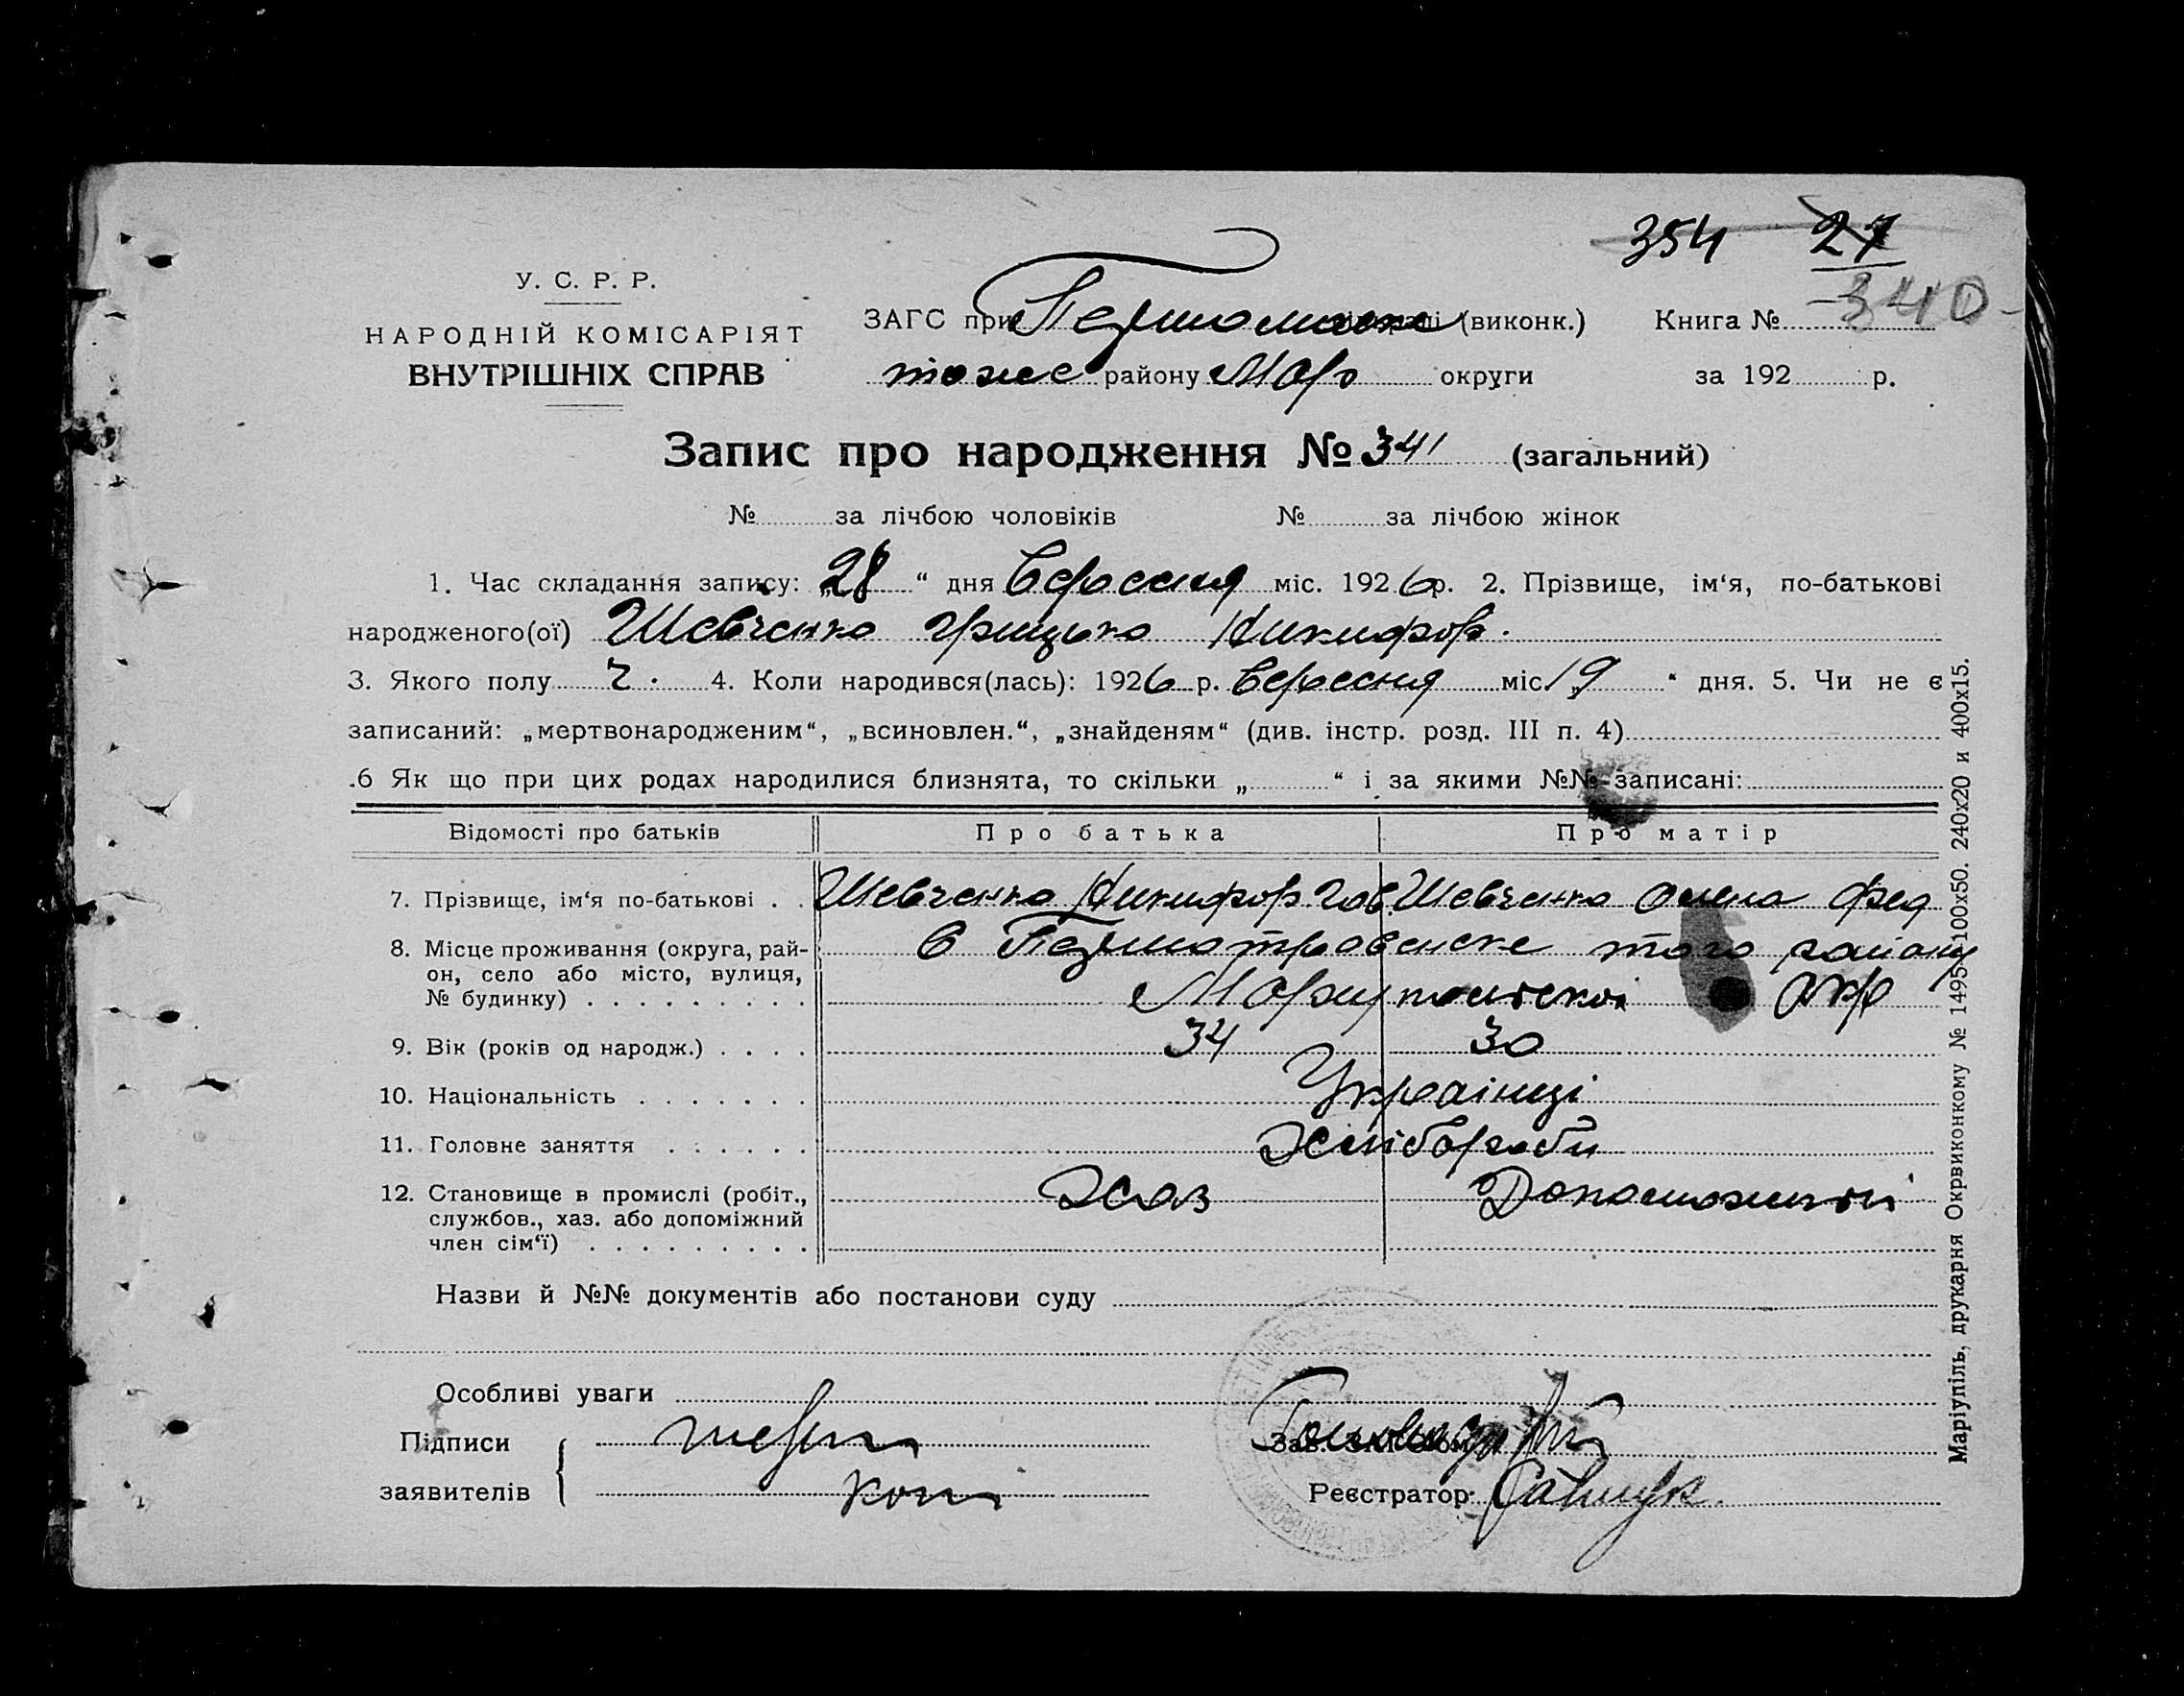 354 27
340
У. С. Р. Р.
НАРОДНІЙ КОМІСАРІЯТ
ВНУТРІШНІХ СПРАВ
ЗАГС при (виконк.) Книга №
тоже району Мар округи за 192 р.
Запис про народження № 341 (загальний)
№ за лічбою чоловіків № за лічбою жінок
1. Час складання запису: „28“ дня Вересня міс. 1926 р. 2. Прізвище, ім‘я, по-батькові
народженого(ої) Шевченко Грицько Никифор.
3. Якого полу ч. 4. Коли народився(лась): 1926 р. Вересня міс. „19“ дня. 5. Чи не є
записаний: „мертвонародженим“, „всиновлен.“, „знайденям“ (див. інстр. розд. III п. 4)
.6 Як що при цих родах народилися близнята, то скільки „ “ і за якими №№ записані:
Відомості про батьків Про батька Про матір
7. Прізвище, ім‘я по-батькові . . Шевченко Никифор Шевченко Олена Фед
8. Місце проживання (округа, рай- в того району
он, село або місто, вулиця,
№ будинку) . . . . . . . . . Маріупольскоі окр
9. Вік (років од народж.) . . . . 34 30
10. Національність . . . . . . . Украінці
11. Головне заняття . . . . . . Хлібороби
12. Становище в промислі (робіт., Хаз
службов., хаз. або допоміжний
член сім‘ї) . . . . . . . . .
Назви й №№ документів або постанови суду
Особливі уваги
Підписи
заявителів
Реєстратор
Маріупіль, друкарня Окрвиконкому № 1495-100х50. 240х20 и 400х15.